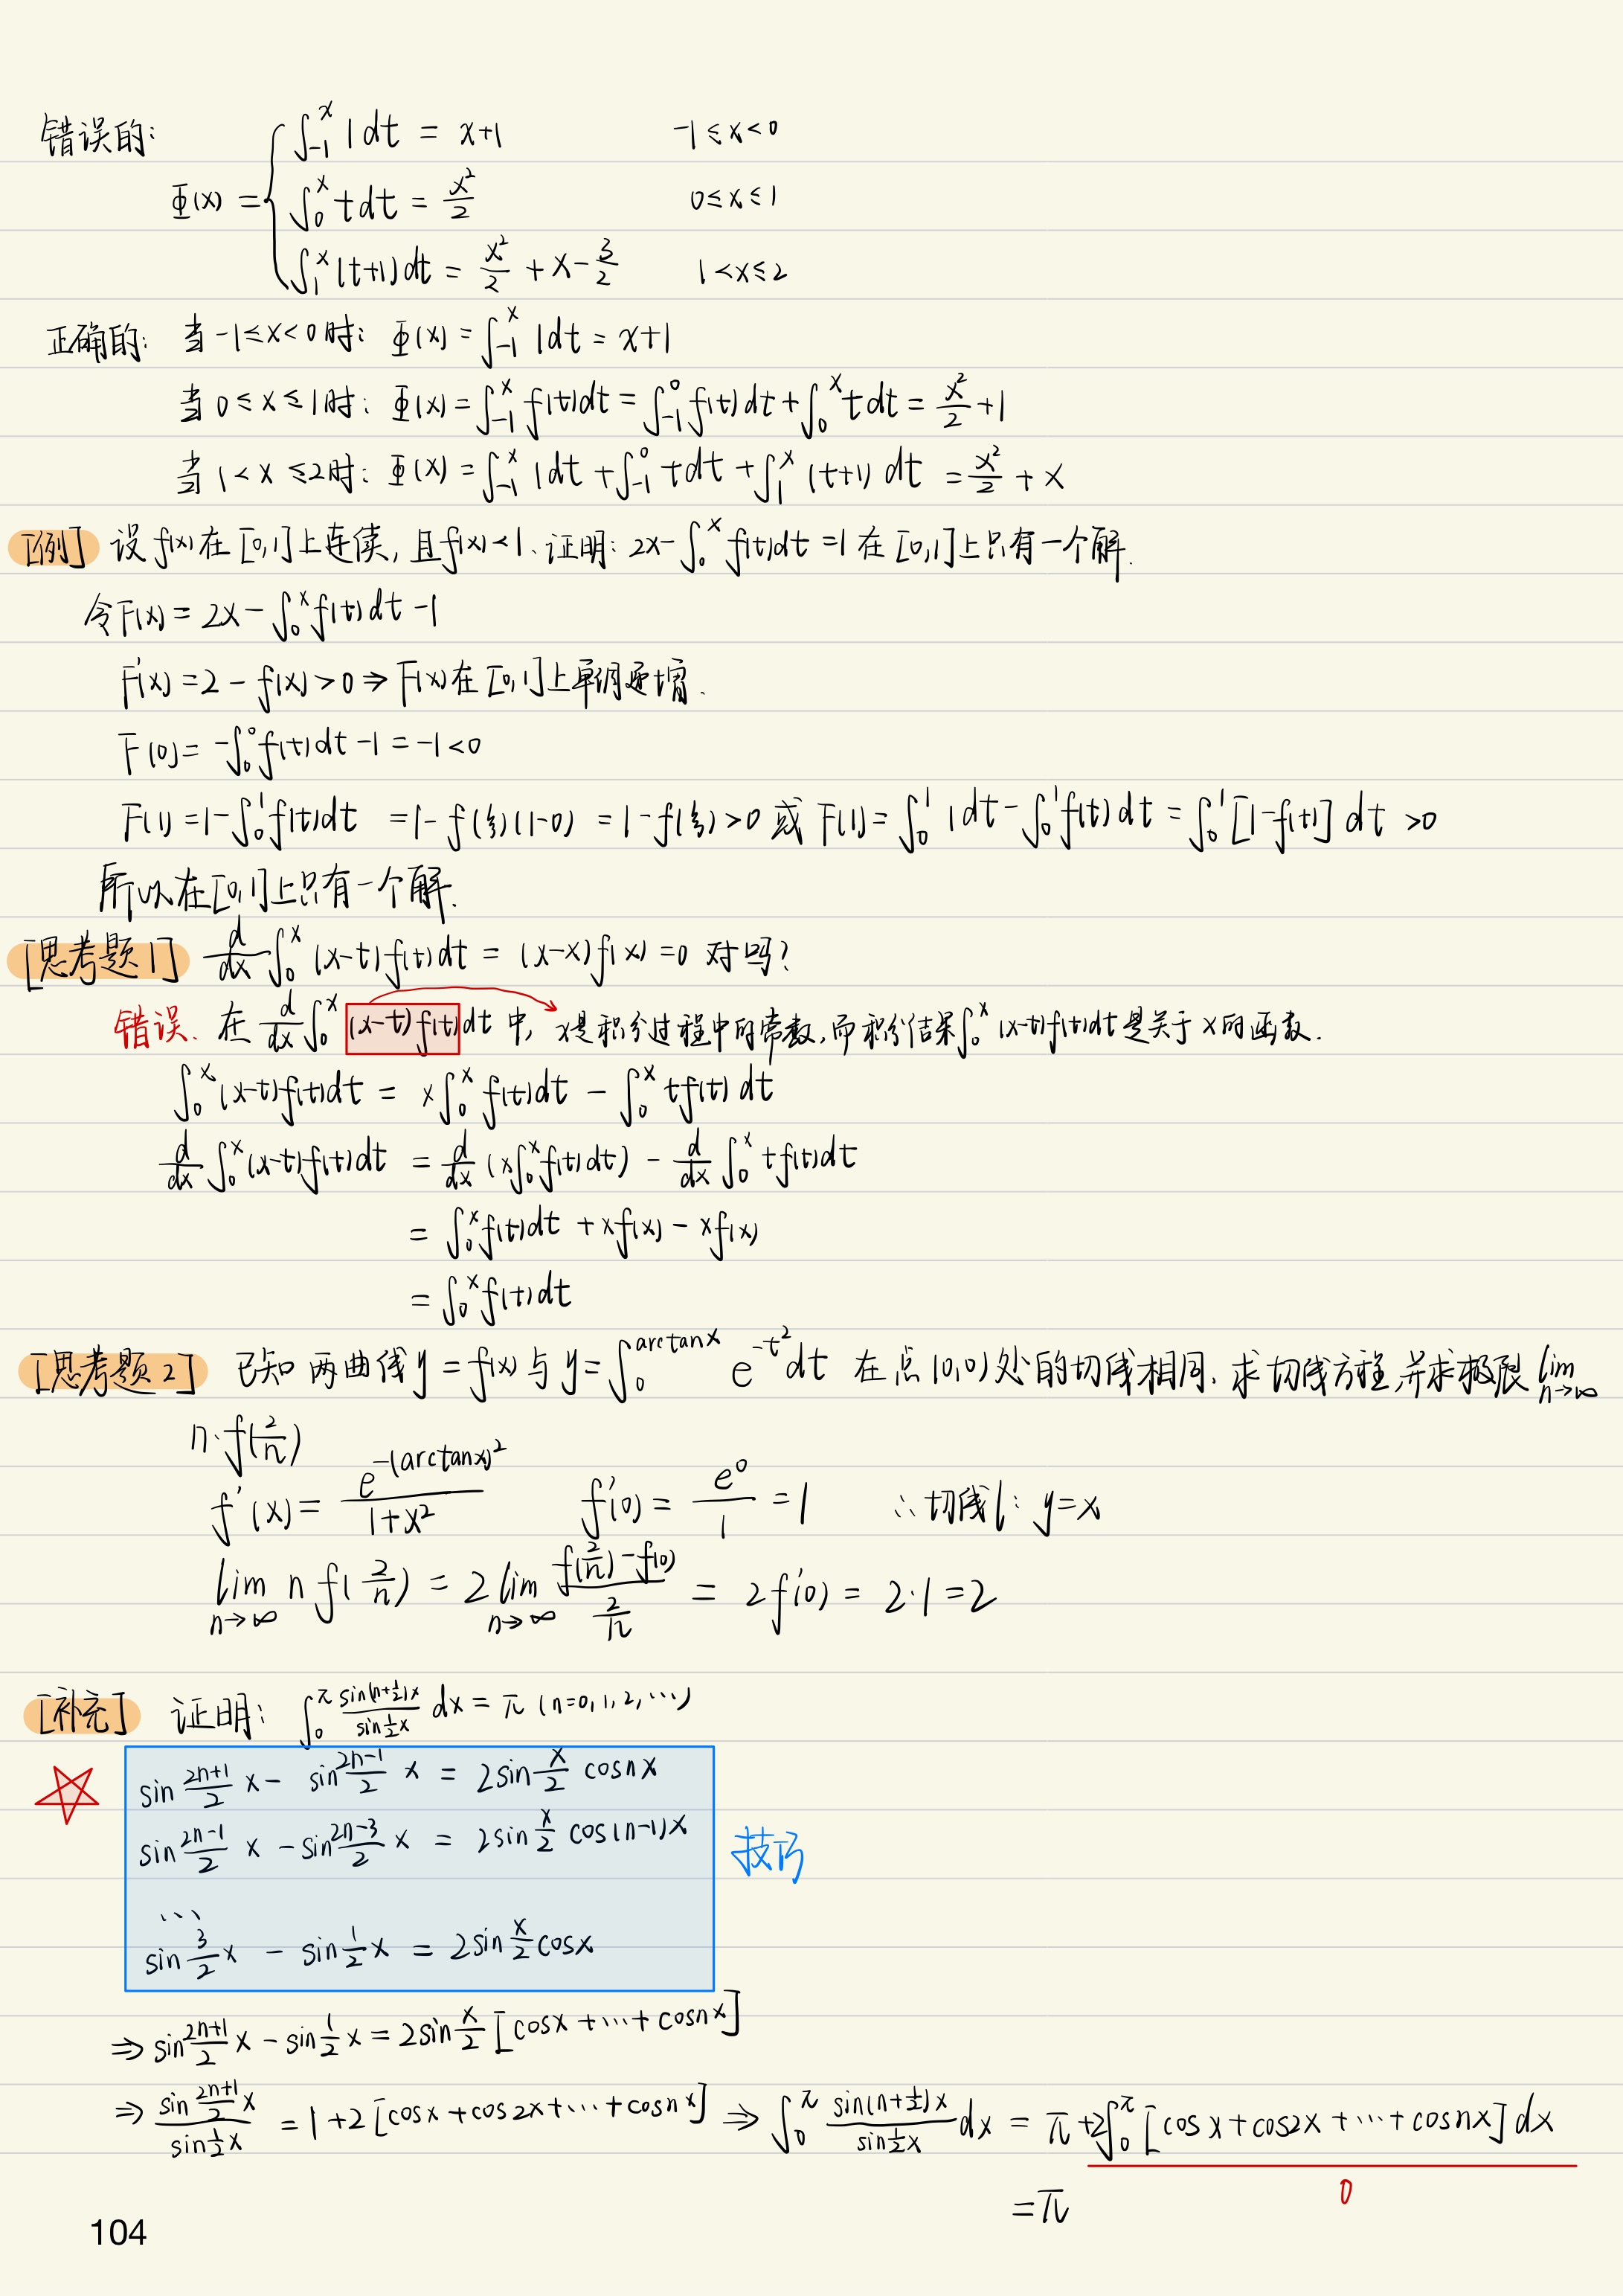 错误的:
Φ(x) = { ∫_{-1}^{x} 1dt = x+1    -1≤x<0
∫_{0}^{x} tdt = x²/2    0≤x≤1
∫_{1}^{x} (t+1)dt = x²/2 + x - 3/2    1<x≤2
正确的: 当 -1≤x<0时: Φ(x) = ∫_{-1}^{x} 1dt = x+1
当 0≤x≤1时: Φ(x) = ∫_{-1}^{x} f(t)dt = ∫_{-1}^{0} f(t)dt + ∫_{0}^{x} tdt = x²/2 + 1
当 1<x≤2时: Φ(x) = ∫_{-1}^{x} 1dt + ∫_{-1}^{0} tdt + ∫_{1}^{x} (t+1) dt = x²/2 + x
[例] 设f(x)在[0,1]上连续, 且f(x)<1. 证明: 2x-∫_{0}^{x} f(t)dt =1 在[0,1]上只有一个解.
令F(x) = 2x - ∫_{0}^{x} f(t)dt -1
F'(x) = 2 - f(x) > 0 ⇒ F(x)在[0,1]上单调递增.
F(0) = -∫_{0}^{0} f(t)dt -1 = -1<0
F(1) = 1-∫_{0}^{1} f(t)dt = 1- f(ξ)(1-0) = 1-f(ξ)>0 或 F(1) = ∫_{0}^{1} 1dt - ∫_{0}^{1} f(t)dt = ∫_{0}^{1} [1-f(t)] dt >0
所以在[0,1]上只有一个解.
[思考题1] d/dx ∫_{0}^{x} (x-t)f(t)dt = (x-x)f(x) =0 对吗?
错误. 在 d/dx ∫_{0}^{x} (x-t)f(t)dt 中, x是积分过程中的常数, 而积分结果∫_{0}^{x} (x-t)f(t)dt是关于x的函数.
∫_{0}^{x} (x-t)f(t)dt = x∫_{0}^{x} f(t)dt - ∫_{0}^{x} tf(t) dt
d/dx ∫_{0}^{x} (x-t)f(t)dt = d/dx (x∫_{0}^{x} f(t)dt) - d/dx ∫_{0}^{x} tf(t)dt
= ∫_{0}^{x} f(t)dt + xf(x) - xf(x)
= ∫_{0}^{x} f(t)dt
[思考题2] 已知两曲线y=f(x)与y=∫_{0}^{arctanx} e^{-t²}dt 在点(0,0)处的切线相同. 求切线方程,并求极限 lim_{n→∞}
n·f(2/n)
f'(x) = e^{-(arctanx)²}/(1+x²)    f'(0) = e⁰/1 = 1    ∴切线l: y=x
lim_{n→∞} n f(2/n) = 2 lim_{n→∞} (f(2/n)-f(0))/(2/n) = 2f'(0) = 2·1 = 2
[补充] 证明: ∫_{0}^{π} sin(n+1/2)x / sin½x dx = π (n=0,1,2,…)
sin (2n+1)/2 x - sin (2n-1)/2 x = 2sin x/2 cosnx
sin (2n-1)/2 x - sin (2n-3)/2 x = 2sin x/2 cos(n-1)x
技巧
…
sin 3/2 x - sin 1/2 x = 2sin x/2 cosx
⇒ sin (2n+1)/2 x - sin 1/2 x = 2sin x/2 [cosx+…+cosnx]
⇒ sin (2n+1)/2 x / sin½x = 1+2[cosx+cos2x+…+cosnx] ⇒ ∫_{0}^{π} sin(n+½)x / sin½x dx = π+2∫_{0}^{π} [cosx+cos2x+…+cosnx] dx
0
=π
104